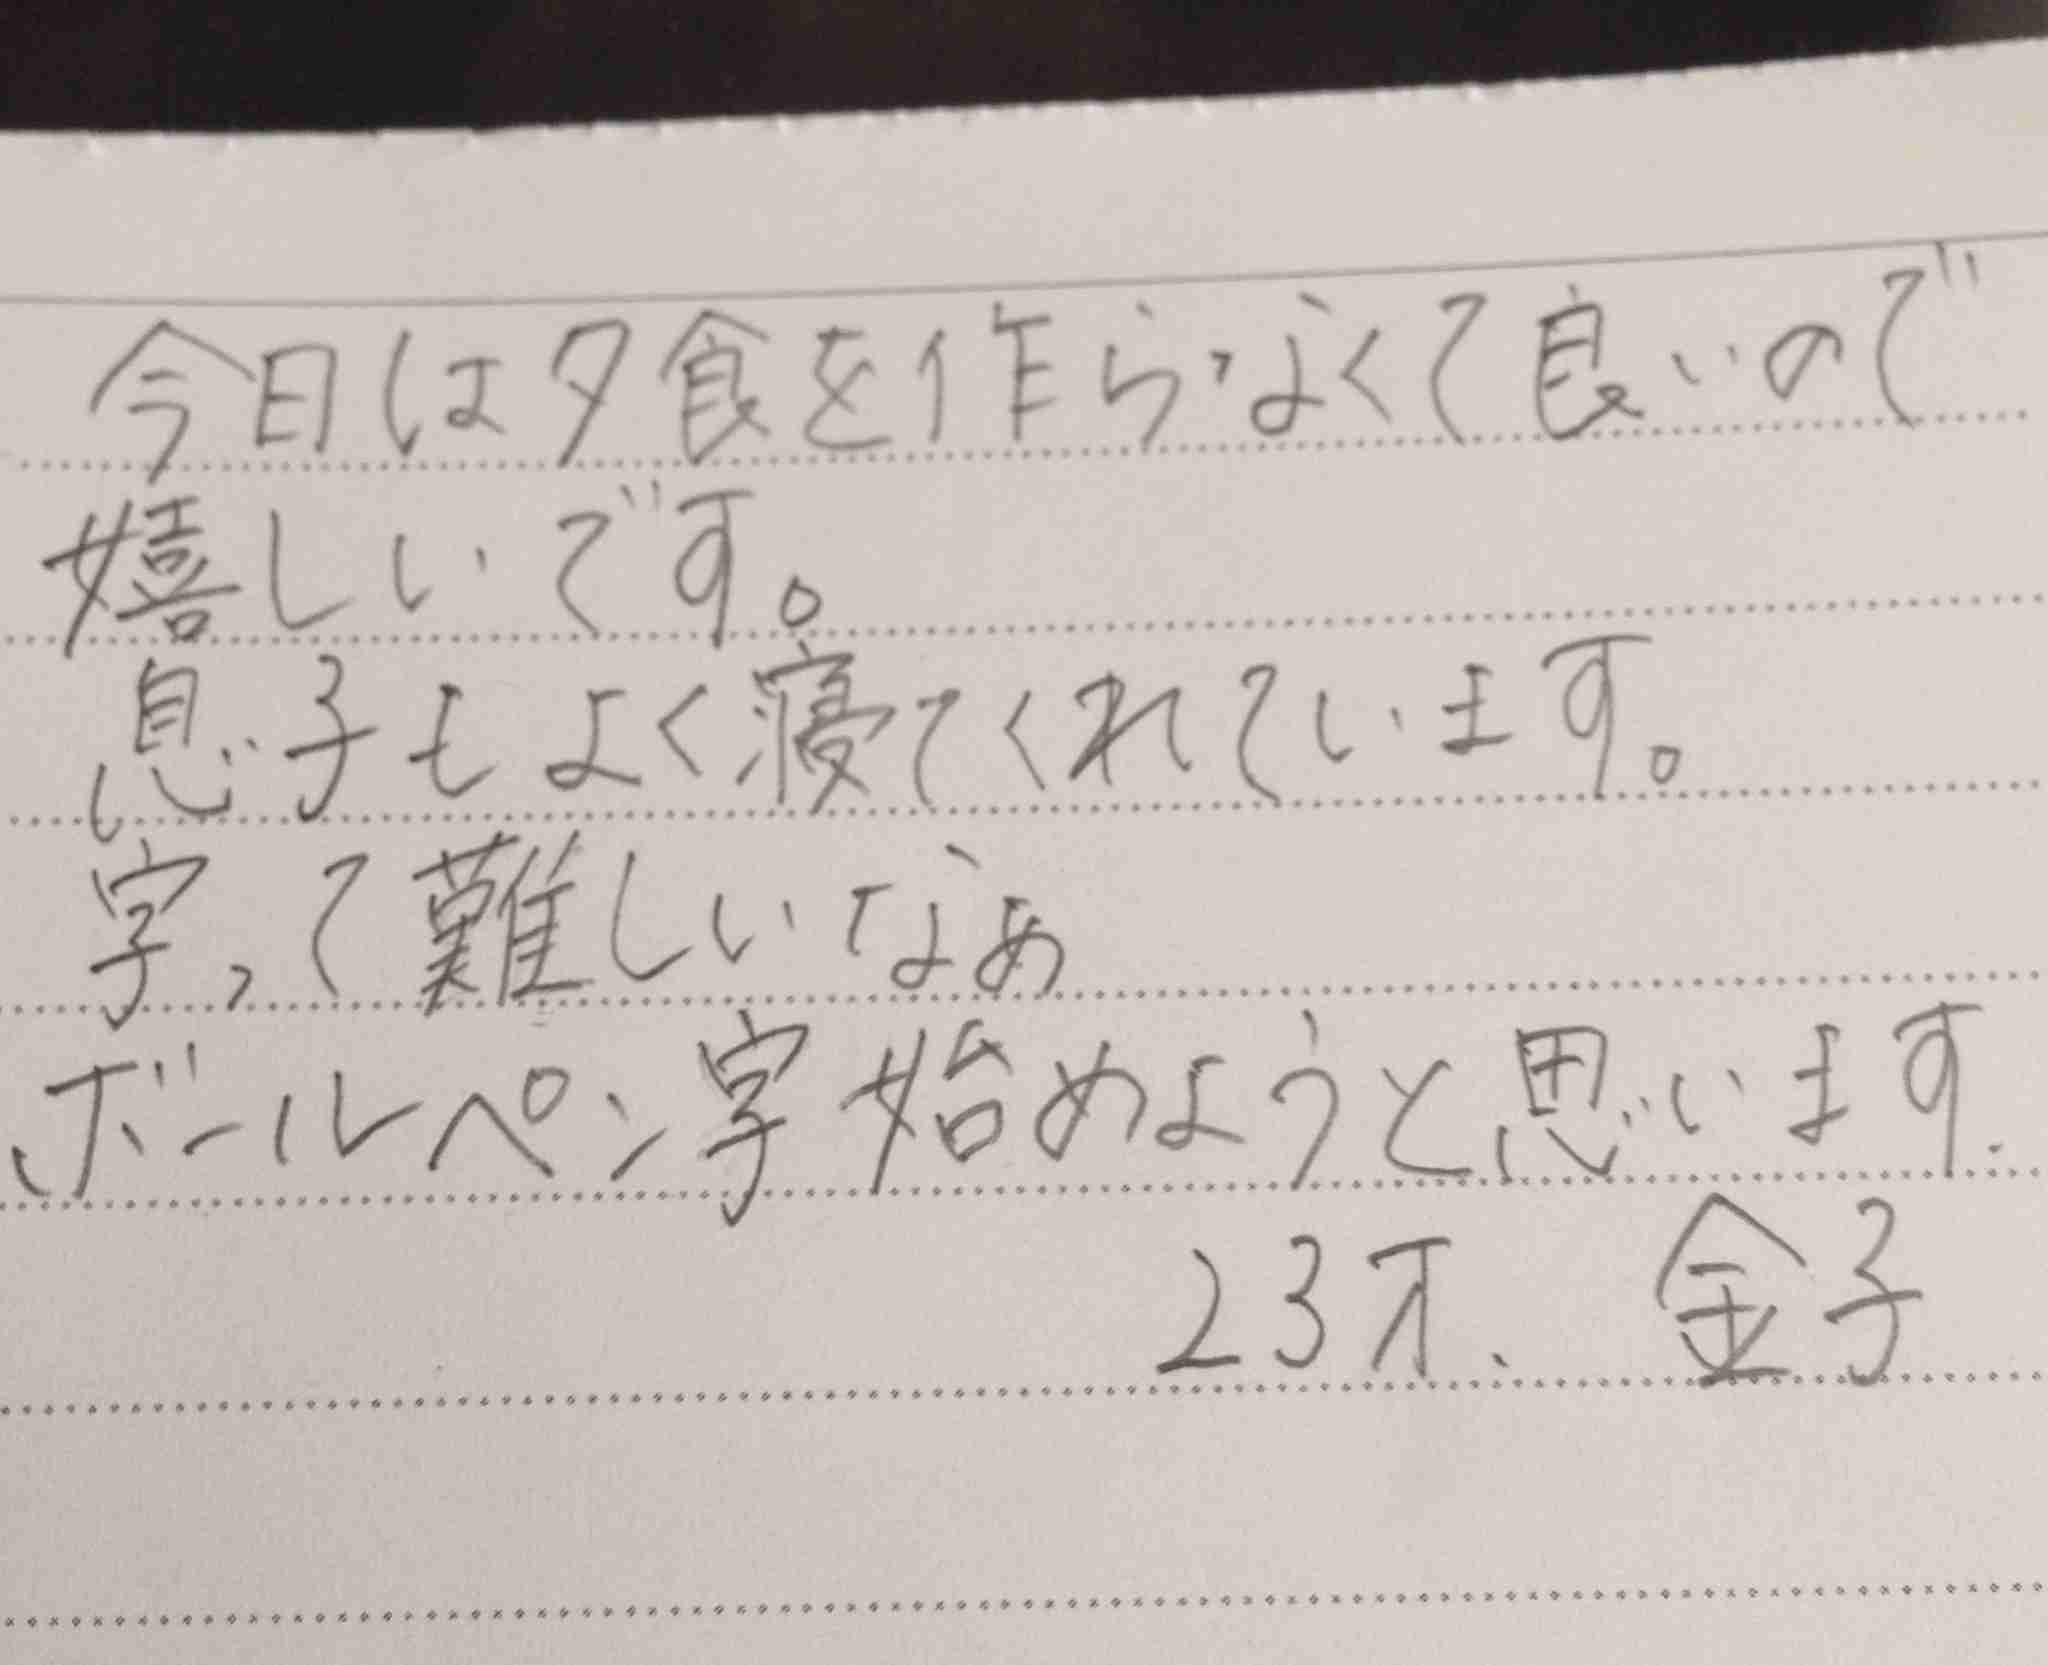 今日は夕食を作らなくて良いので
嬉しいです。
息子もよく寝てくれています。
字って難しいなぁ
ボールペン字始めようと思います.
23才、金子